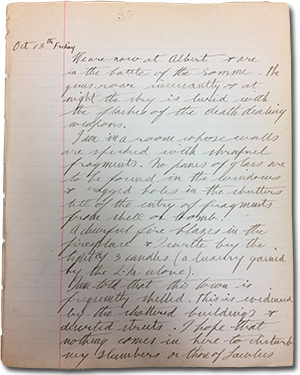 Oct 13th Friday
We are now at Albert & are
in the battle of the Somme. The
guns roar incessantly & at
night the sky is lurid with
the flashes of the death dealing
weapons.
I am in a room whose walls
are splashed with shrapnel
fragments. No panes of glass are
to be found in the windows
& ragged holes in the shutters
tell of the entry of fragments
from shell or bomb.
A cheerful fire blazes in the
fireplace & I write by the
light of 3 candles (a luxury gained
by the above).
I am told that this town is
frequently shelled. This is evidenced
by the shattered buildings &
deserted streets. I hope that
nothing comes in here to disturb
my slumbers or those of